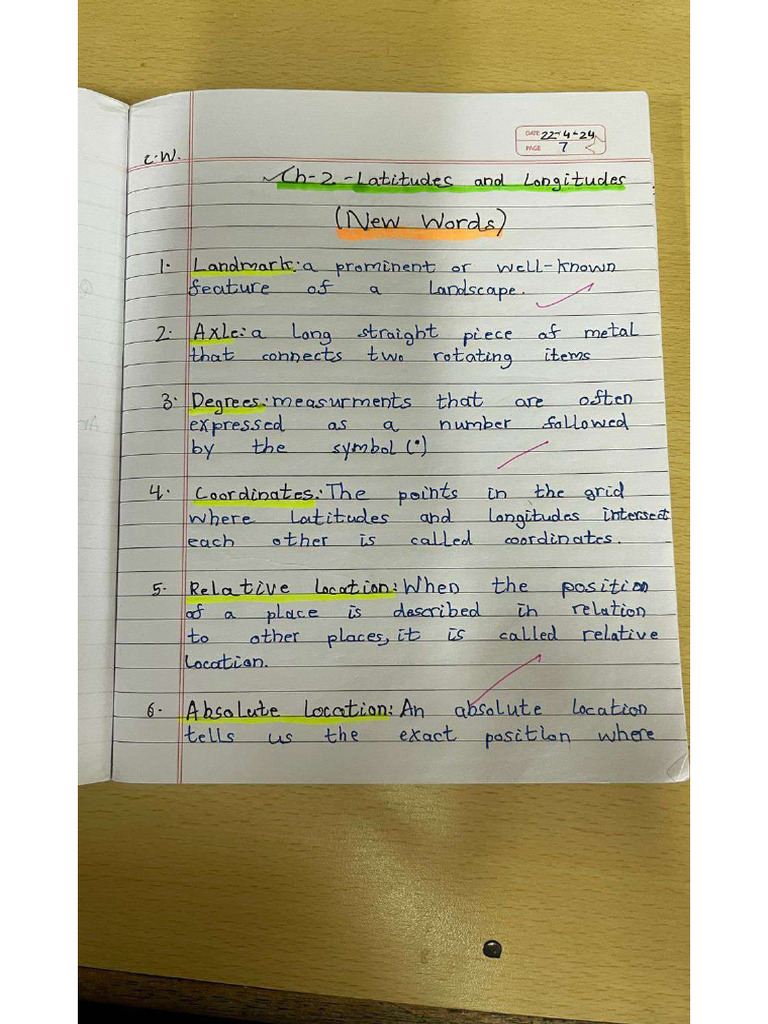 C.W.
DATE 22-4-24
PAGE 7
Ch-2-Latitudes and Longitudes
(New Words)
1. Landmark: a prominent or well-known
feature of a landscape.
2. Axle: a long straight piece of metal
that connects two rotating items
3. Degrees: measurments that are often
expressed as a number followed
by the symbol (°)
4. Coordinates: The points in the grid
where latitudes and longitudes intersect
each other is called coordinates.
5. Relative Location: When the position
of a place is described in relation
to other places, it is called relative
location.
6. Absolute Location: An absolute location
tells us the exact position where